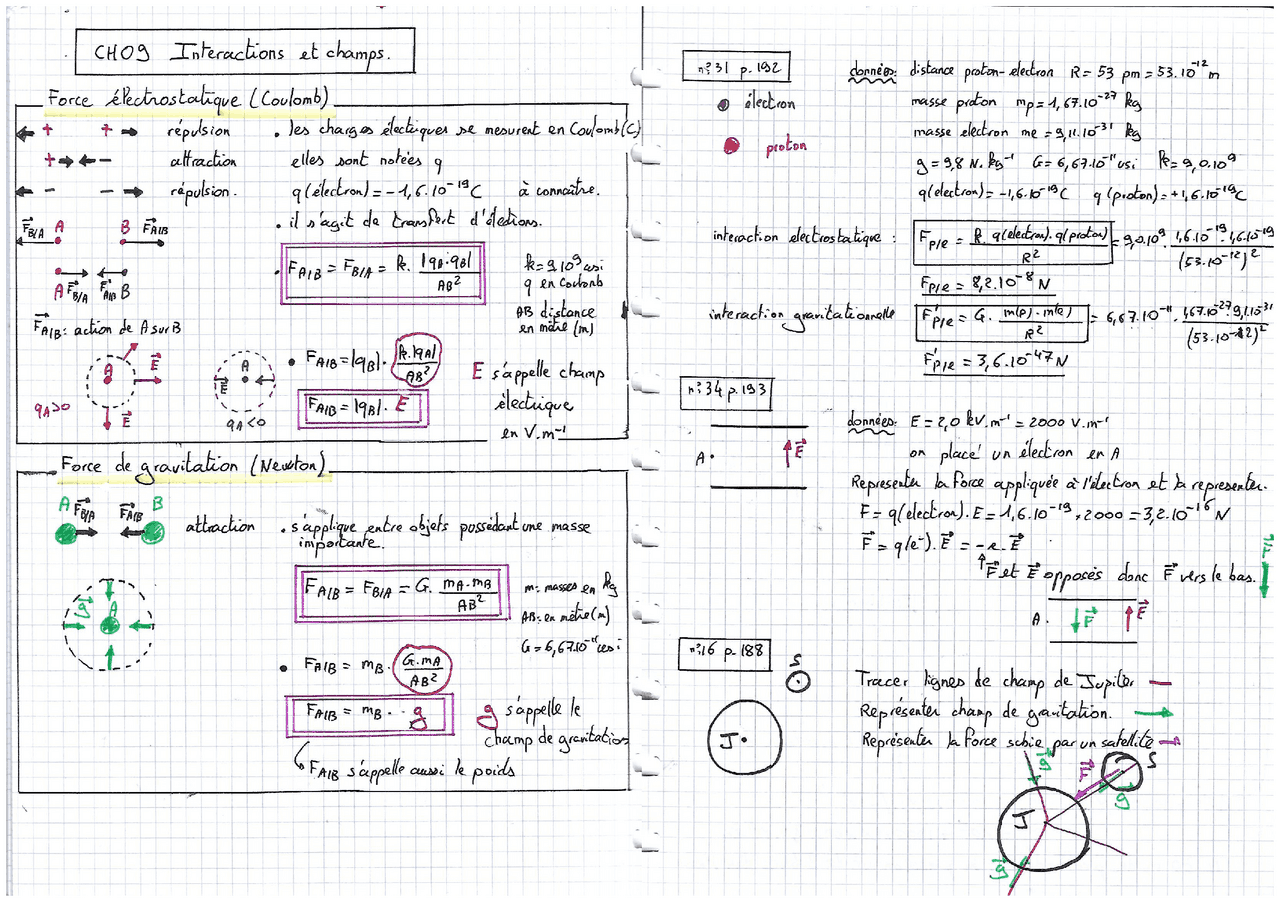 CH09 Interactions et champs.
Force électrostatique (Coulomb)
+ + répulsion
+ - attraction
- - répulsion.
. les charges électriques se mesurent en Coulomb (C)
elles sont notées q
q(électron) = -1,6.10⁻¹⁹ C à connaître.
. il s'agit de transfert d'électrons.
F⃗B/A A B F⃗A/B
A F⃗B/A F⃗A/B B
F⃗A/B : action de A sur B
. FA/B = FB/A = k. |qA.qB| / AB²
k = 9.10⁹ usi
q en coulomb
AB distance
en mètre (m)
A E⃗ E⃗ qA>0
A E⃗ qA<0
. FA/B = |qB|. k.|qA| / AB²
FA/B = |qB|. E
E s'appelle champ
électrique
en V.m⁻¹
Force de gravitation (Newton)
A F⃗B/A F⃗A/B B attraction
. s'applique entre objets possédant une masse
importante.
FA/B = FB/A = G. mA.mB / AB²
m: masses en kg
AB: en mètre (m)
G = 6,67.10⁻¹¹ usi
g⃗ A
. FA/B = mB. G.mA / AB²
FA/B = mB. g
g s'appelle le
champ de gravitation
FA/B s'appelle aussi le poids
n°31 p.192
électron
proton
données: distance proton-electron R = 53 pm = 53.10⁻¹² m
masse proton mp = 1,67.10⁻²⁷ kg
masse electron me = 9,11.10⁻³¹ kg
g = 9,8 N.kg⁻¹ G = 6,67.10⁻¹¹ usi k = 9,0.10⁹
q(electron) = -1,6.10⁻¹⁹ C q(proton) = +1,6.10⁻¹⁹ C
interaction electrostatique : Fp/e = k.q(electron).q(proton) / R² = 9,0.10⁹. 1,6.10⁻¹⁹.1,6.10⁻¹⁹ / (53.10⁻¹²)²
Fp/e = 8,2.10⁻⁸ N
interaction gravitationnelle F'p/e = G. m(p).m(e) / R² = 6,67.10⁻¹¹. 1,67.10⁻²⁷.9,1.10⁻³¹ / (53.10⁻¹²)²
F'p/e = 3,6.10⁻⁴⁷ N
n°34 p.193
A. E⃗
données: E = 2,0 kV.m⁻¹ = 2000 V.m⁻¹
on place un électron en A
Representer la force appliquée à l'électron et la representer.
F = q(electron).E = 1,6.10⁻¹⁹ × 2000 = 3,2.10⁻¹⁶ N
F⃗ = q(e⁻).E⃗ = -e.E⃗
F⃗ et E⃗ opposés donc F⃗ vers le bas. F⃗
A. F⃗ E⃗
n°16 p.188
S
J.
Tracer lignes de champ de Jupiter
Représenter champ de gravitation.
Représenter la force subie par un satellite
g⃗ F⃗ S
g⃗
J
g⃗